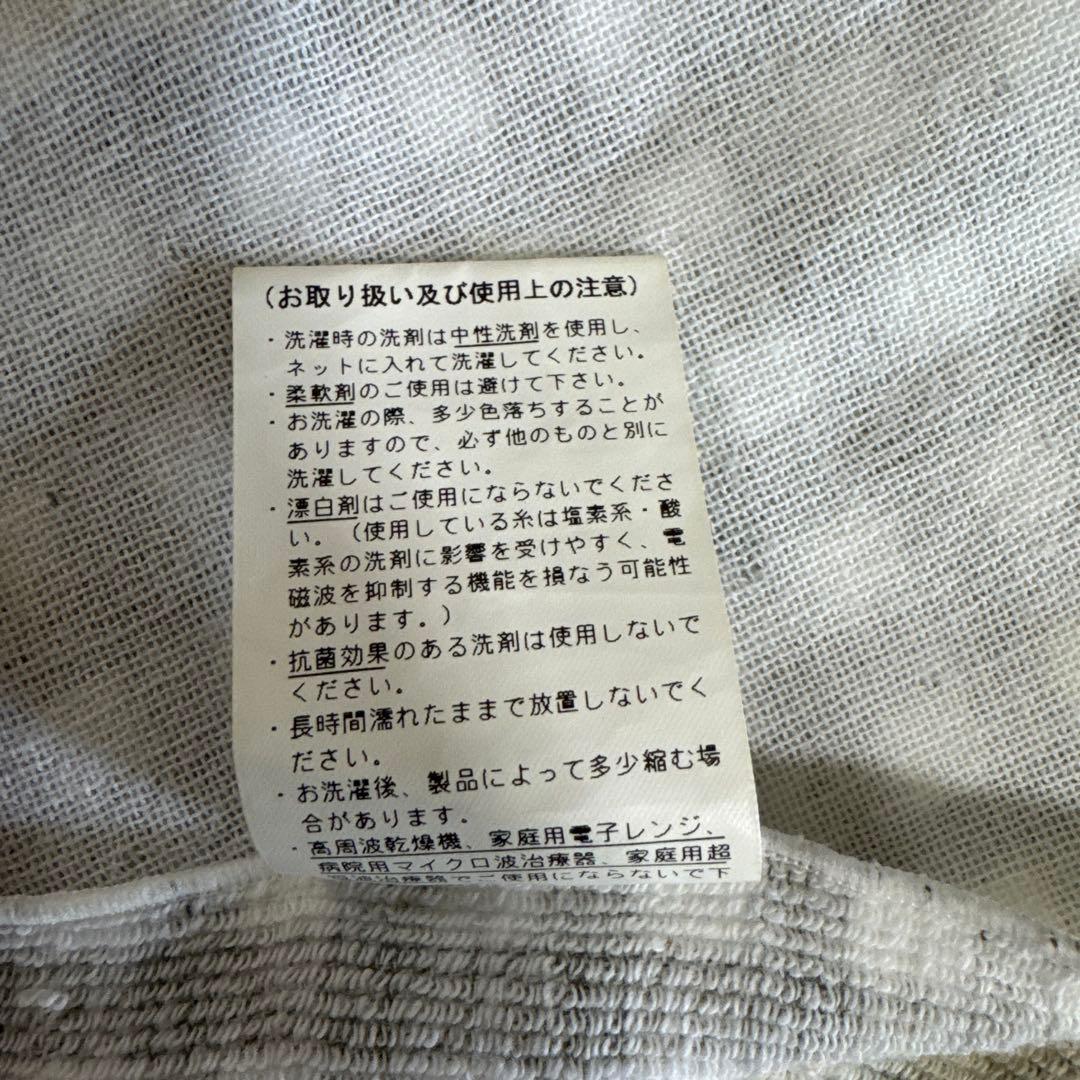 (お取り扱い及び使用上の注意)
・洗濯時の洗剤は中性洗剤を使用し、
ネットに入れて洗濯してください。
・柔軟剤のご使用は避けて下さい。
・お洗濯の際、多少色落ちすることが
ありますので、必ず他のものと別に
洗濯してください。
・漂白剤はご使用にならないでくださ
い。(使用している糸は塩素系・酸
素系の洗剤に影響を受けやすく、電
磁波を抑制する機能を損なう可能性
があります。)
・抗菌効果のある洗剤は使用しないで
ください。
・長時間濡れたままで放置しないでく
ださい。
・お洗濯後、製品によって多少縮む場
合があります。
・高周波乾燥機、家庭用電子レンジ、
病院用マイクロ波治療器、家庭用超
波治療器でご使用にならないで下